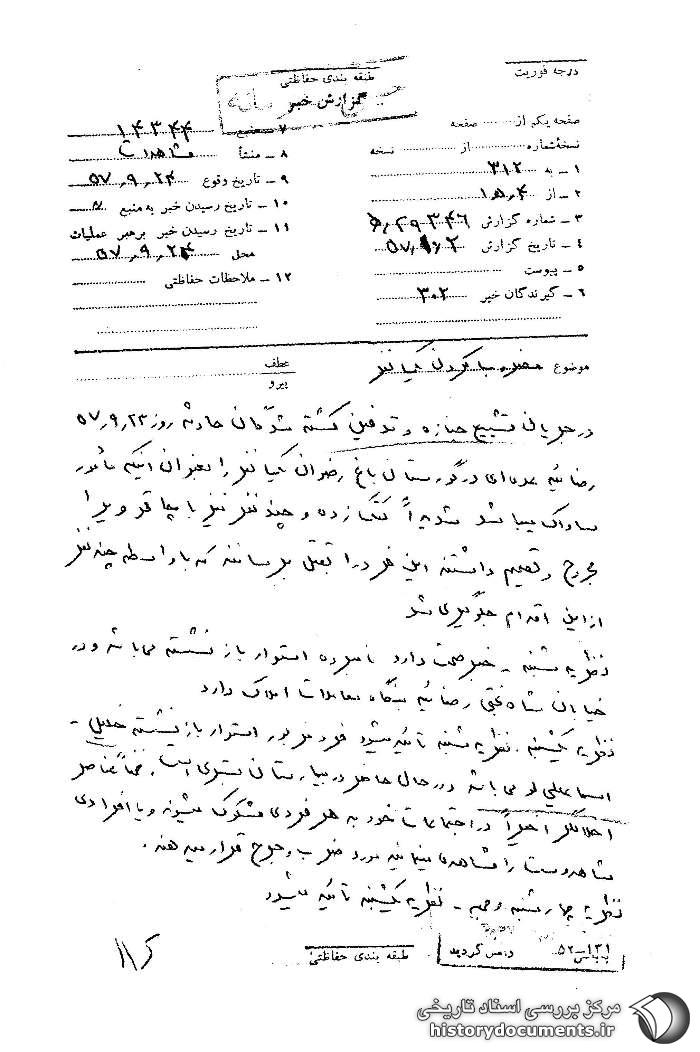 درجه فوریت
طبقه بندی حفاظتی
گزارش خبر
صفحه یکم از صفحه
نسخه‌شماره از نسخه
۱ – به ۳۱۲
۲ – از ۱۵.۴
۳ – شماره گزارش
۴ – تاریخ گزارش
۵ – پیوست
۶ – گیرندگان خبر ۳۰۲
۷ – منبع ۱۴۳۴۴
۸ – منشأ مشاهدات
۹ – تاریخ وقوع ۵۷.۹.۲۴
۱۰ – تاریخ رسیدن خبر به منبع
۱۱ – تاریخ رسیدن خبر برهبر عملیات
محل ۵۷.۹.۲۴
۱۲ – ملاحظات حفاظتی
موضوع مضروب کردن یک نفر
عطف
پیرو
در جریان تشییع جنازه و تدفین کشته شدگان حادثه روز ۵۷.۹.۲۳
رضائیه عده‌ای در گورستان باغ رضوان یک نفر را بعنوان اینکه مأمور
ساواک میباشد شدیداً کتک زده و چند نفر نیز با چاقو ویرا
مجروح و تصمیم داشتند این فرد را بقتل برسانند که با واسطه چند نفر
از این اقدام جلوگیری شد
نظریه شنبه – خبر صحت دارد نامبرده استوار بازنشسته میباشد و در
خیابان شاه نقی رضائیه بنگاه معاملات املاک دارد
نظریه یکشنبه – نظریه شنبه تأئید میشود فرد مزبور استوار بازنشسته خلیلی –
اسماعیلی لو می باشد و در حال حاضر در بیمارستان بستری است ضمناً عناصر
اخلالگر اخیراً در اجتماعات خود به هر فردی مشکوک میشوند و یا افرادی
را مشاهده مینمایند مورد ضرب و جرح قرار میدهند.
نظریه چهارشنبه و جمعه – نظریه یکشنبه تأئید میشود
طبقه بندی حفاظتی
مرکز بررسی اسناد تاریخی
historydocuments.ir